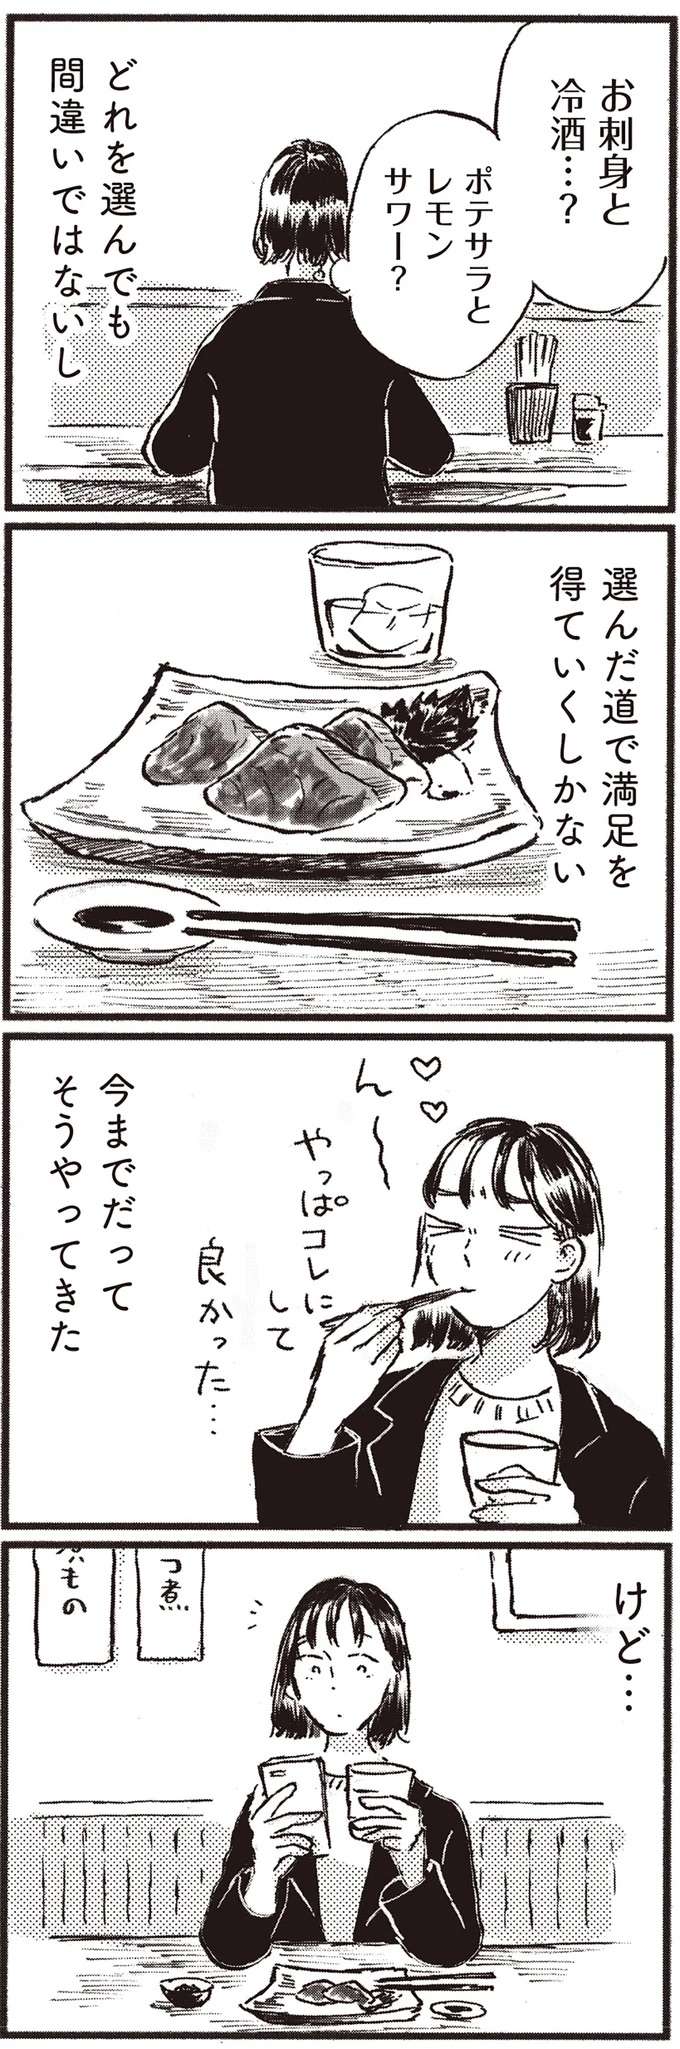 お刺身と
冷酒…？
ポテサラと
レモン
サワー？
どれを選んでも
間違いではないし
選んだ道で満足を
得ていくしかない
ん〜
やっぱコレに
して
良かった…
今までだって
そうやってきた
けど…
つ煮
もの